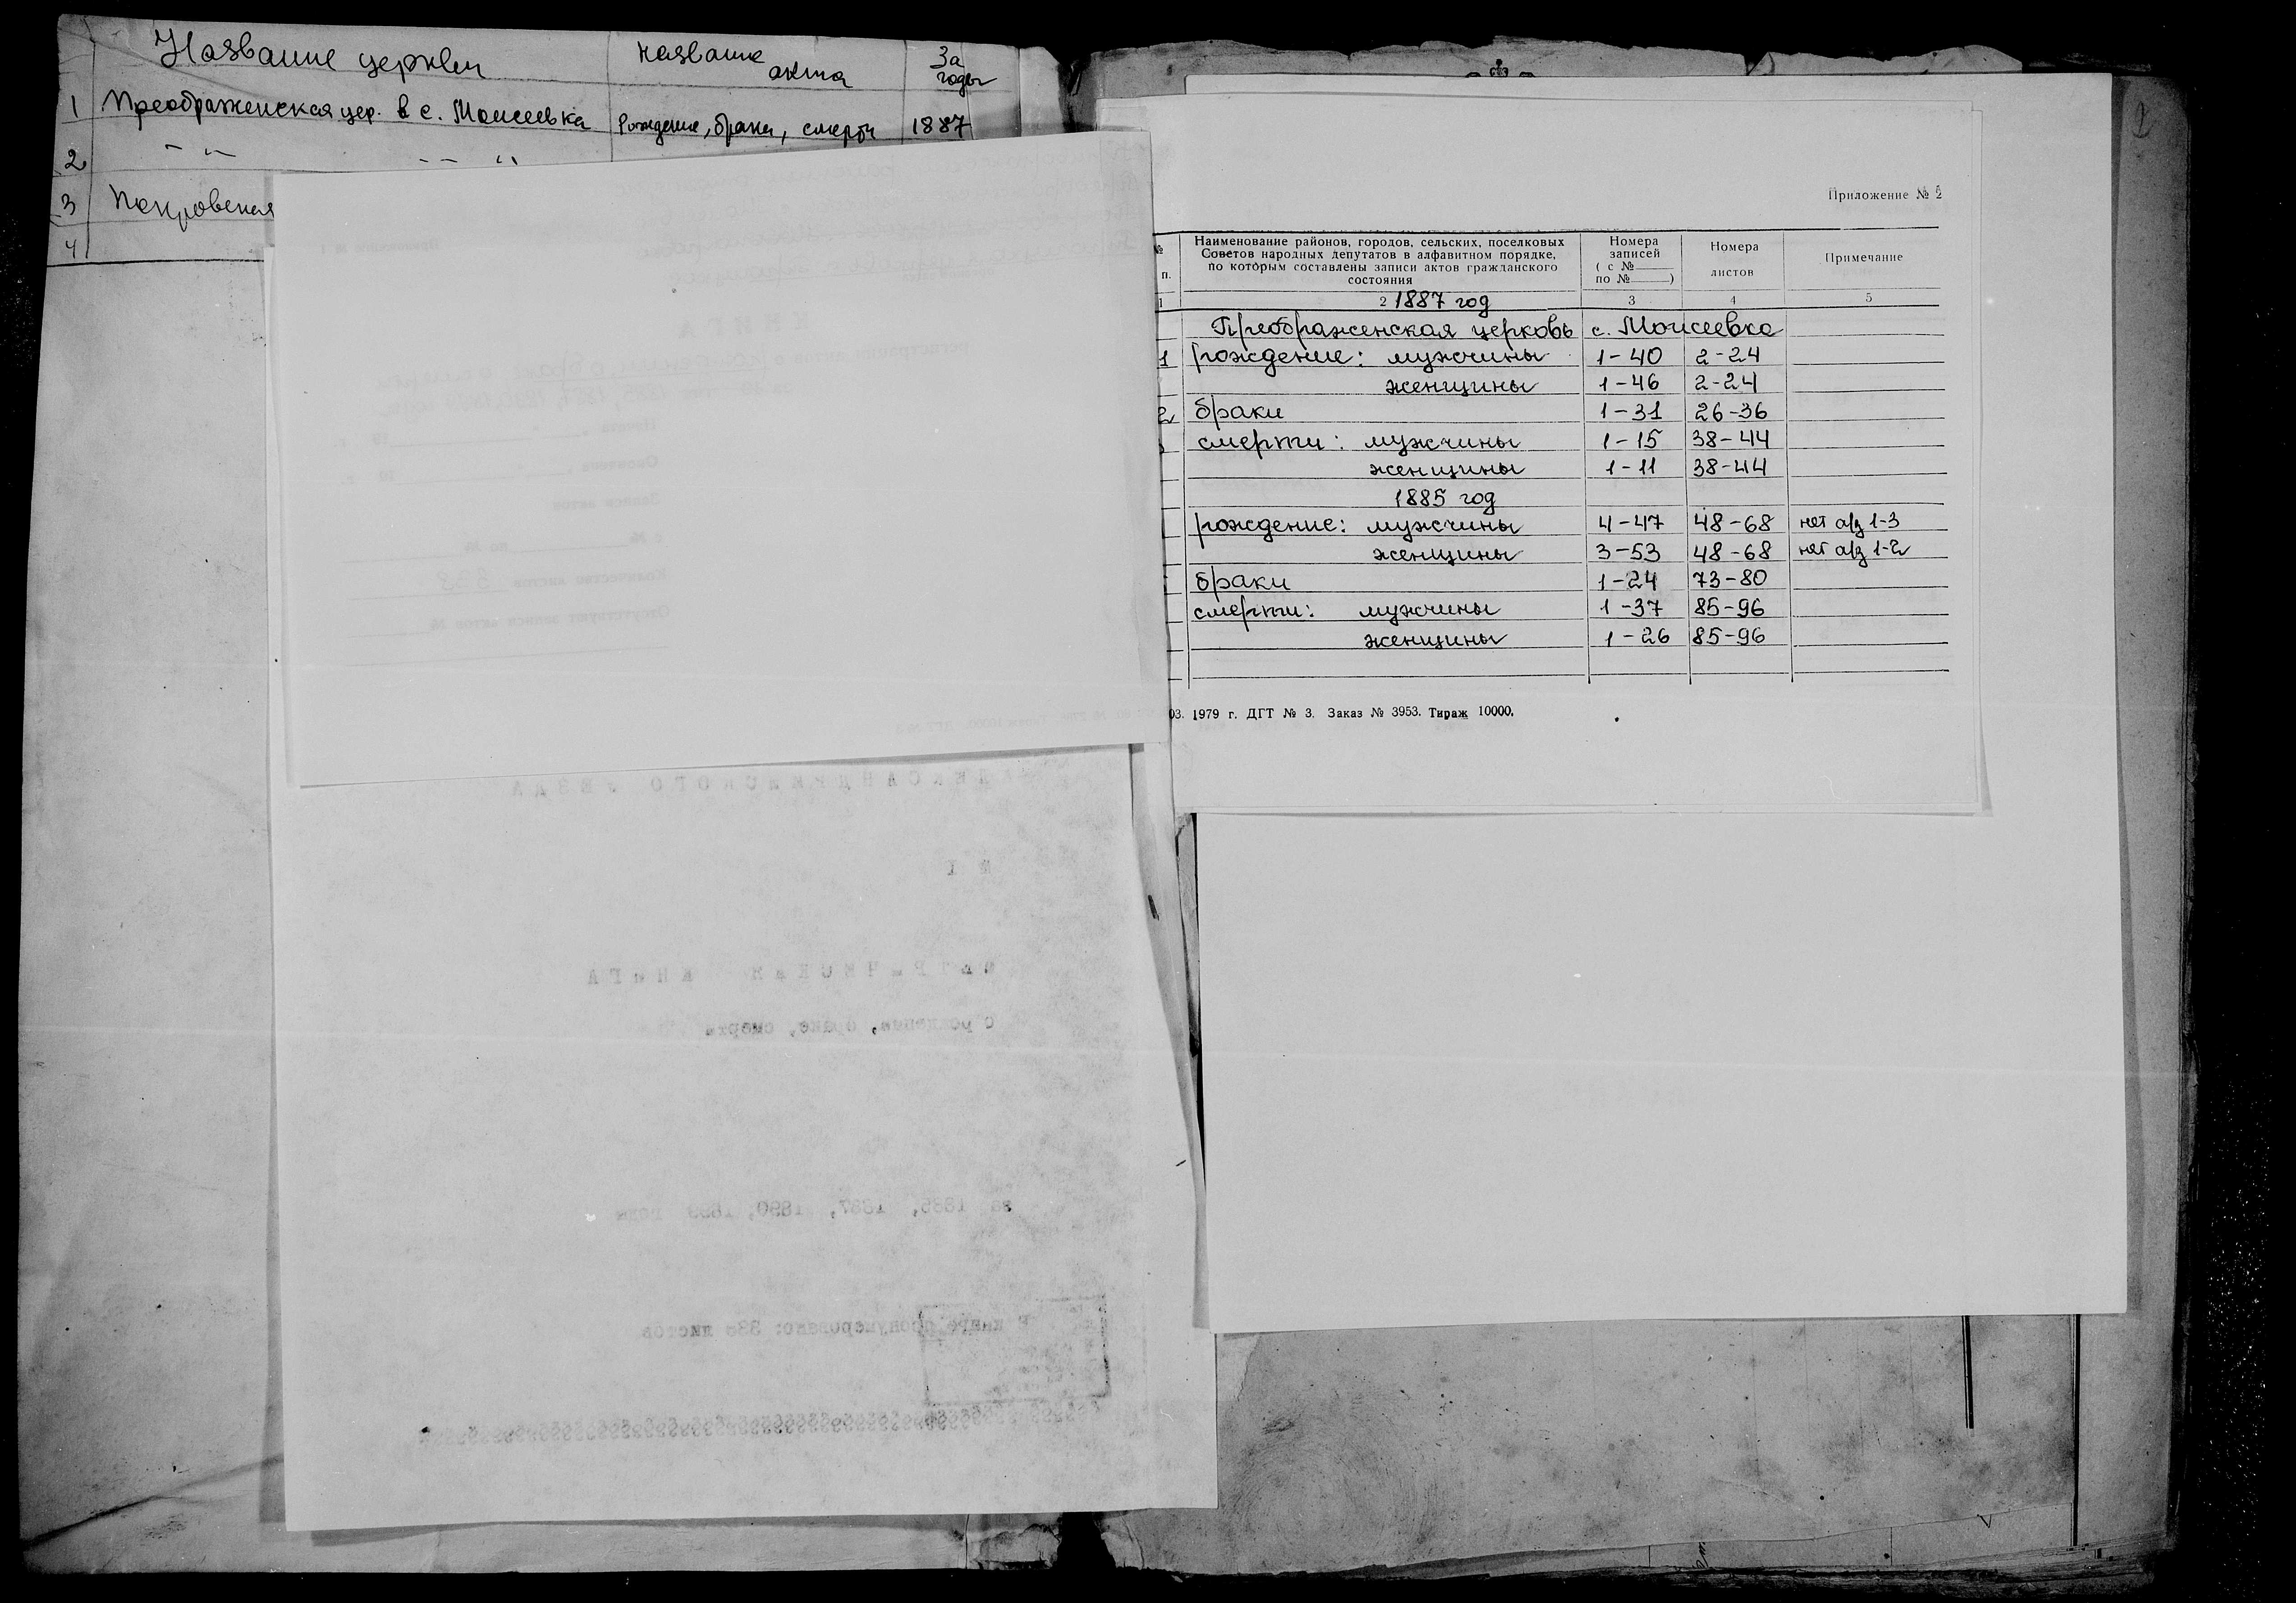 Название церкви
Название акта
За годы
1 Преображенская цер. в с. Моисеевка рождение, браки, смерти 1887
2 - " - - - "
3 Покровская
4
1
Приложение № 2
№ п.
Наименование районов, городов, сельских, поселковых
Советов народных депутатов в алфавитном порядке,
по которым составлены записи актов гражданского
состояния
Номера
записей
( с №
по № )
Номера
листов
Примечание
1 2 1887 год 3 4 5
Преображенская церковь с. Моисеевка
1 рождение: мужчины 1-40 2-24
женщины 1-46 2-24
2 браки 1-31 26-36
смерти: мужчины 1-15 38-44
женщины 1-11 38-44
1885 год
рождение: мужчины 4-47 48-68 нет а/з 1-3
женщины 3-53 48-68 нет а/з 1-2
браки 1-24 73-80
смерти: мужчины 1-37 85-96
женщины 1-26 85-96
03. 1979 г. ДГТ № 3. Заказ № 3953. Тираж 10000.
АЛЕКСАНДРИЙСКОГО УЕЗДА
№ 1
МЕТРИЧЕСКАЯ КНИГА
о рождении, браке, смерти
за 1885, 1887, 1890, 1893 годы
КНИГА